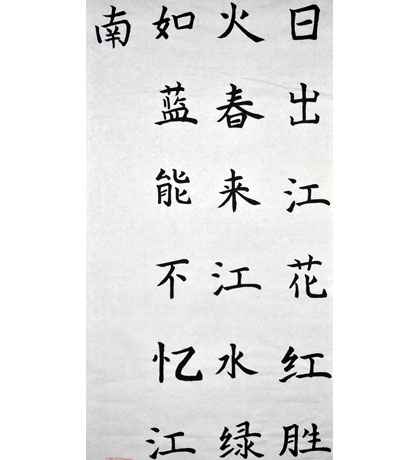 日出江花红胜
火春来江水绿
如蓝能不忆江
南